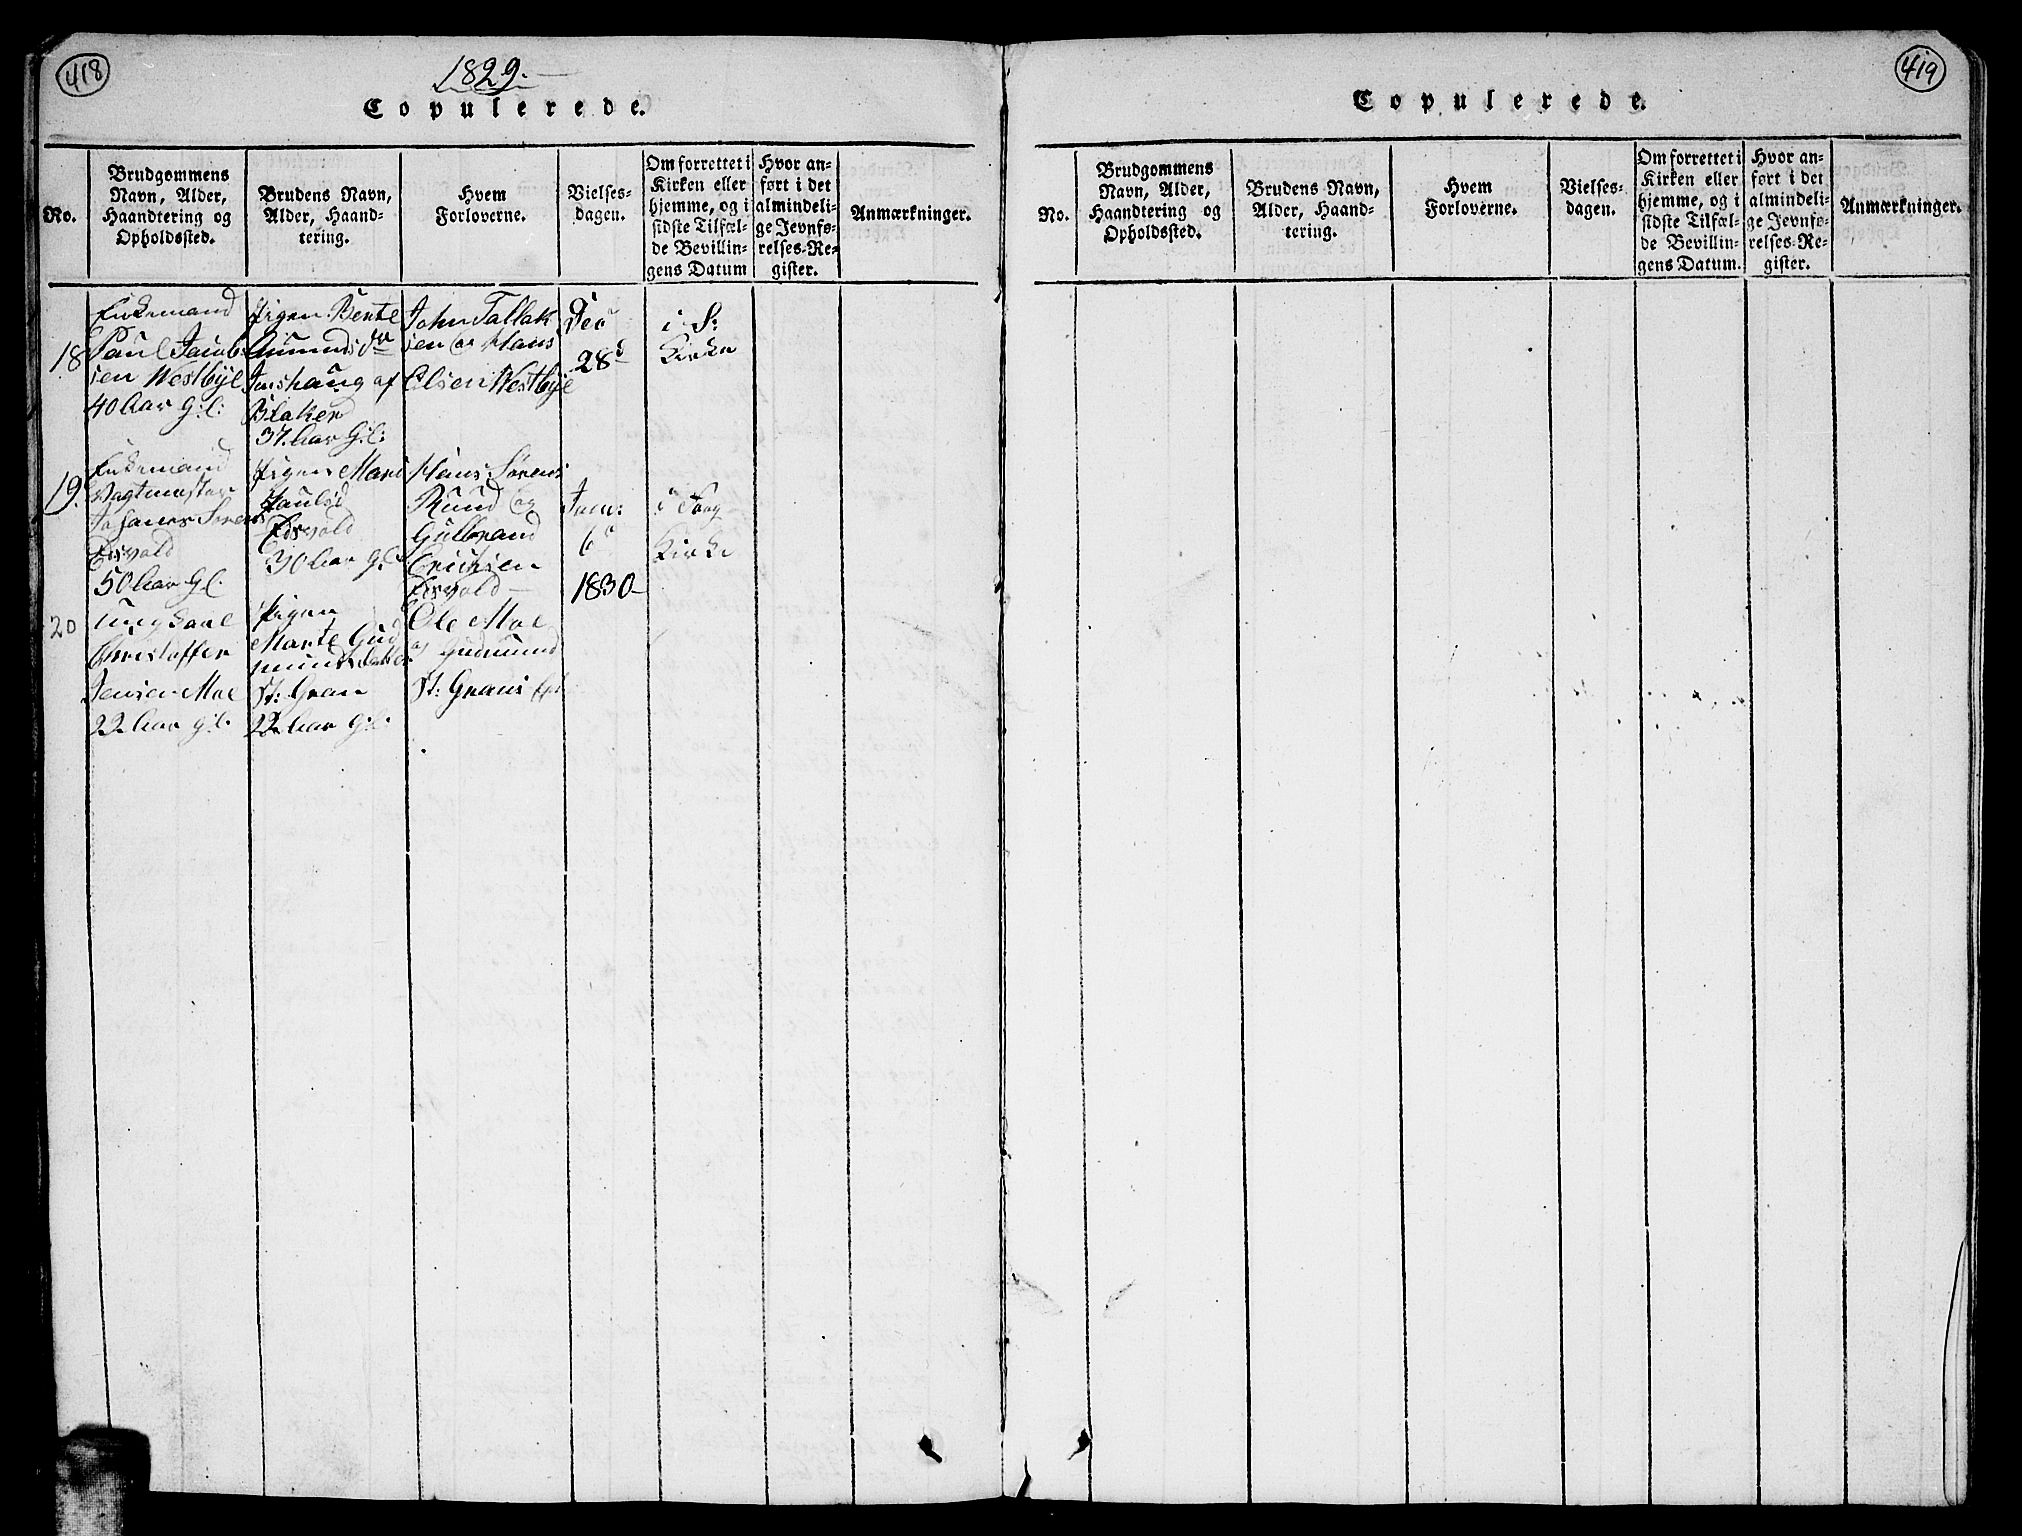 418
1829.
Copulerede.
No.
Brudgommens Navn, Alder, Haandtering og Opholdssted.
Brudens Navn, Alder, Haandtering.
Hvem Forloverne.
Vielsesdagen.
Om forrettet i Kirken eller hjemme, og i sidste Tilfælde Bevillingens Datum
Hvor anført i det almindelige Jevnførelses-Register.
Anmærkninger.
18
Enkemand
Paul Jacob
sen Westbye
40 Aar Gl:
Pigen Bente
Amunds Dr
af
Blaker
37 Aar Gl:
John Tallak
sen og Hans
Olsen Westbye
Dec
28d
i S:
Kirke
19.
Enkemand
Vagtmester
Johanes Sørens
Eisvold
50 Aar Gl.
Pigen Mari
Paulsd
Eisvold
30 Aar Gl
Hans Sørens
Ruud og
Gulbrand
Erichsen
Eisvold
Jan:
6
1830
i
Kirke
20
ungkarl
Christoffer
Jensen Moe
22 Aar gl.
Pigen
Marte Gud
mundsdatter
St: Gran
22 Aar Gl.
Ole Moe
og Gudmund
St: Gran
419
Copulerede.
No.
Brudgommens Navn, Alder, Haandtering og Opholdssted.
Brudens Navn, Alder, Haandtering.
Hvem Forloverne.
Vielsesdagen.
Om forrettet i Kirken eller hjemme, og i sidste Tilfælde Bevillingens Datum.
Hvor anført i det almindelige Jevnførelses-Register.
Anmærkninger.